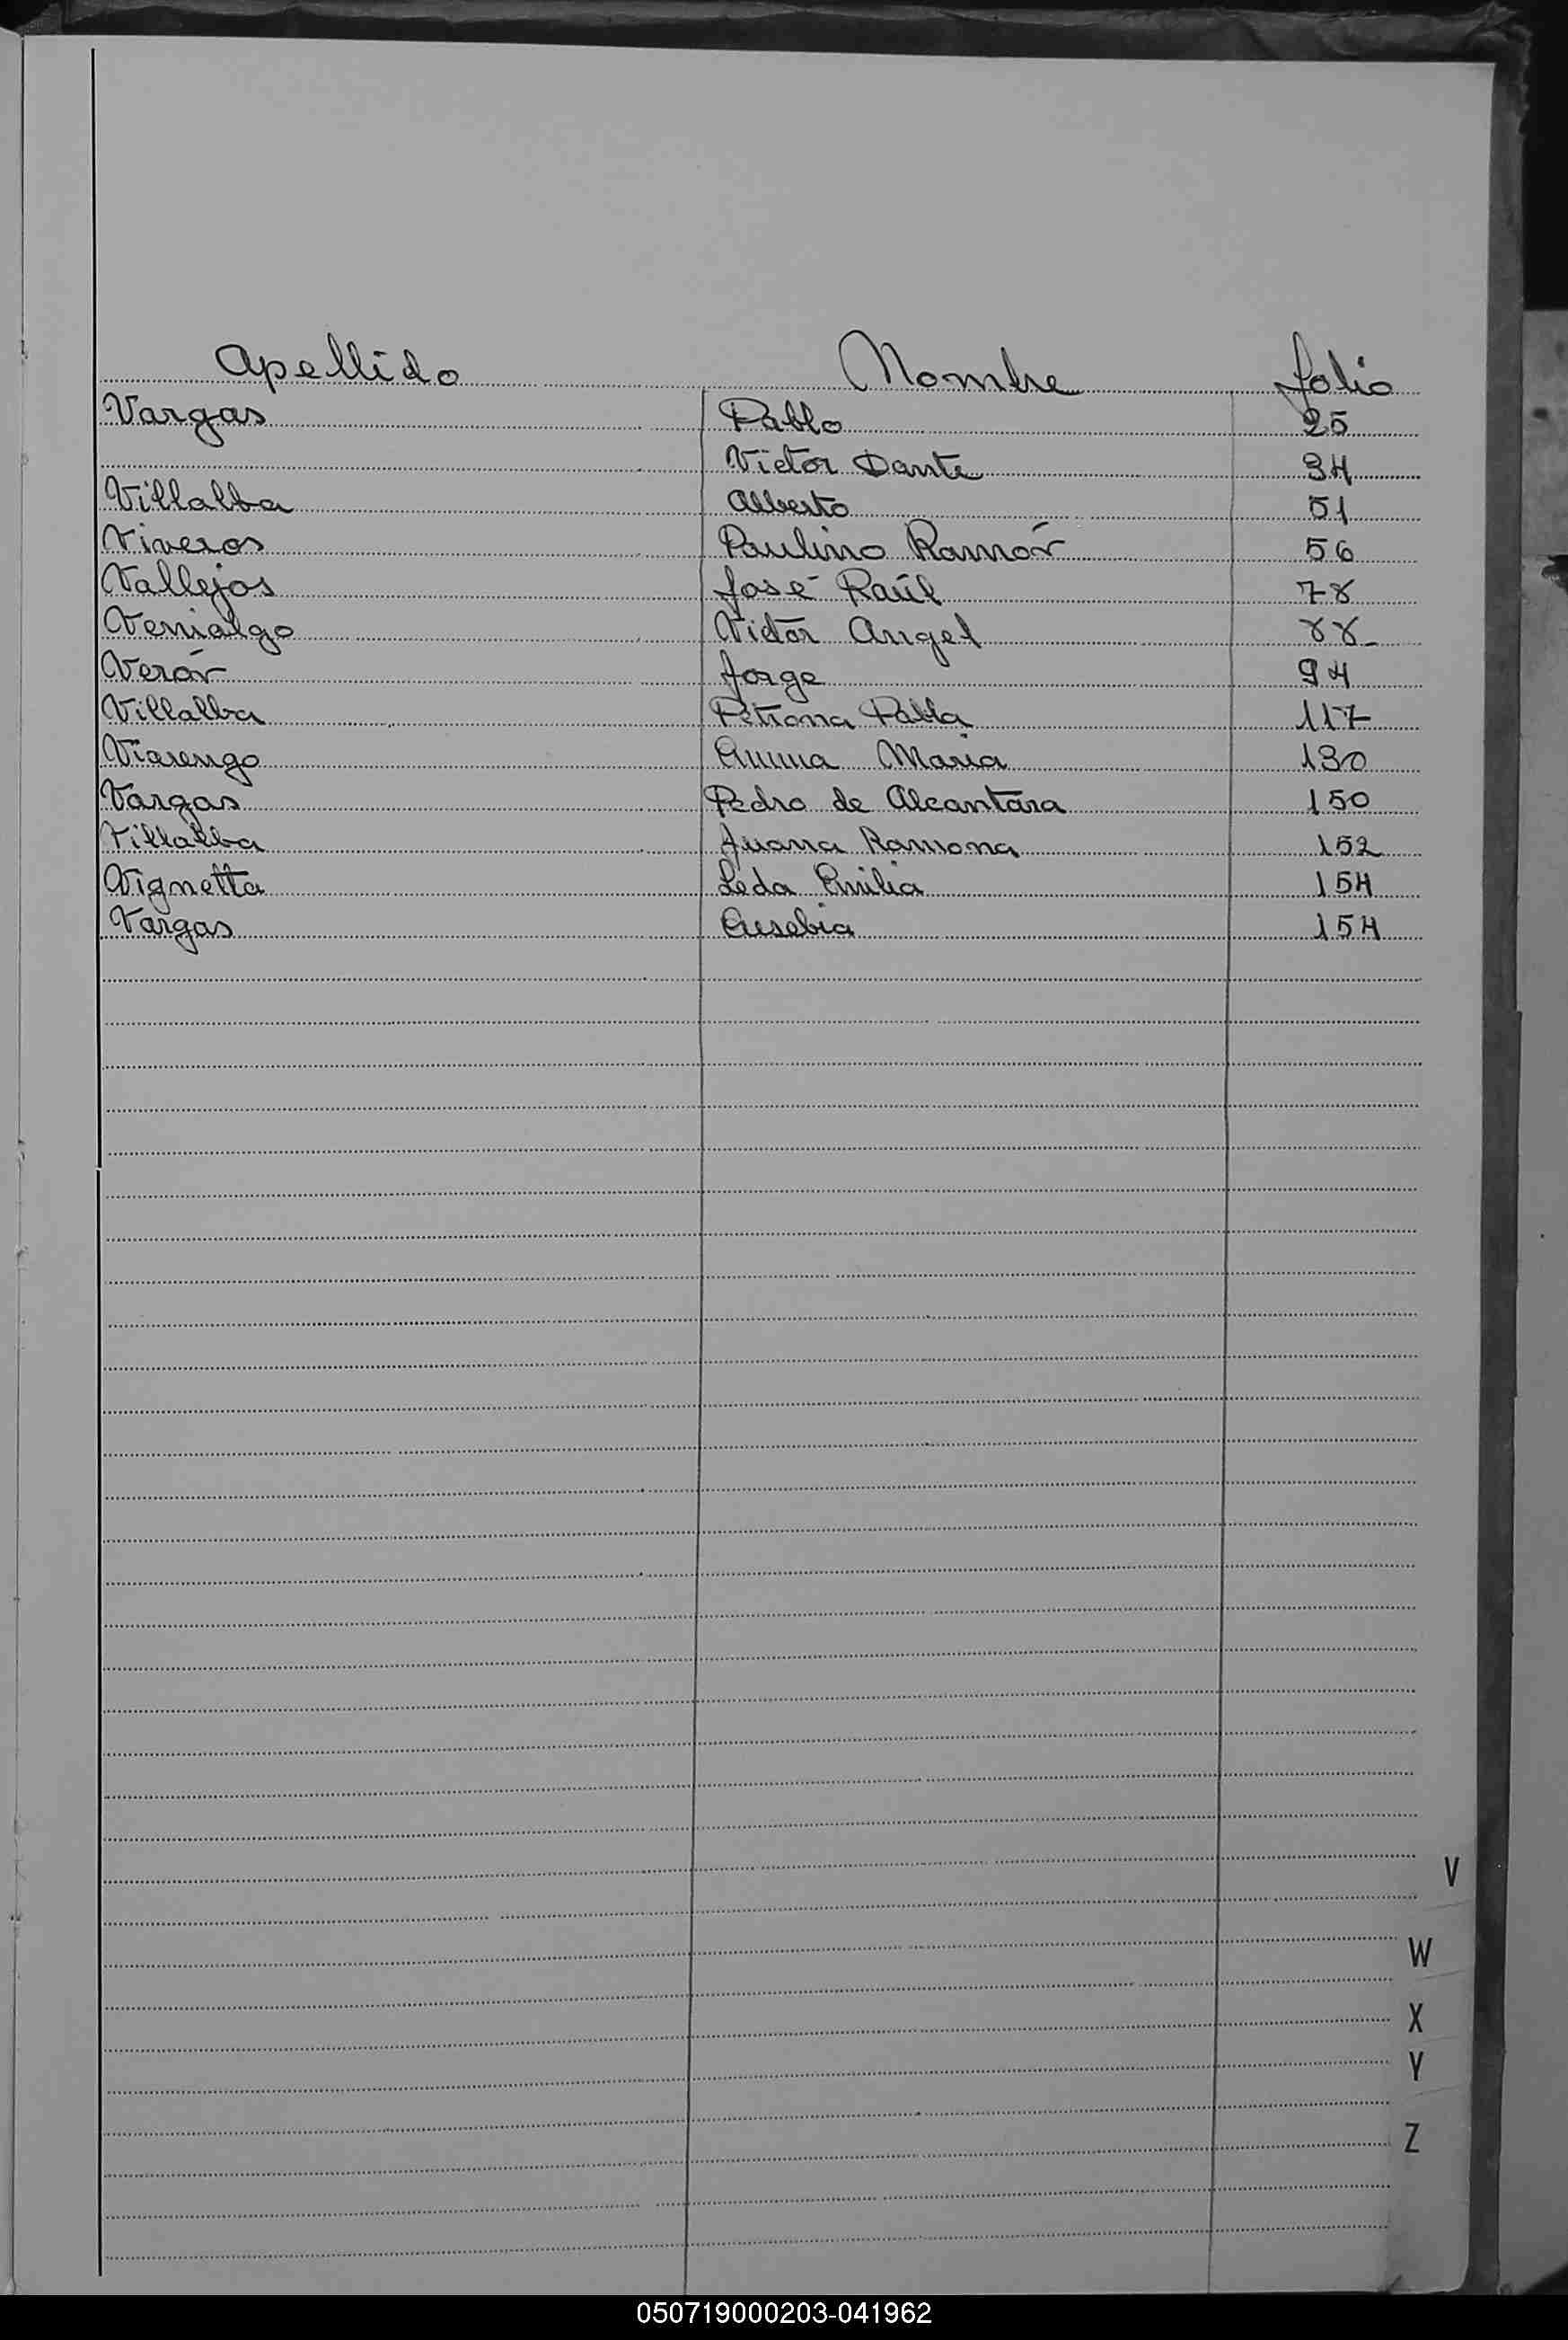 Apellido Nombre folio
Vargas Pablo 25
Victor Dante 34
Villalba Alberto 51
Viveros Paulino Ramón 56
Vallejos José Raúl 78
Venialgo Victor Angel 88
Verón Jorge 94
Villalba Petrona Pabla 117
Viarengo Emma Maria 130
Vargas Pedro de Alcantara 150
Villalba Juana Ramona 152
Vignetta Leda Emilia 154
Vargas Eusebia 154
V
W
X
Y
Z
050719000203-041962